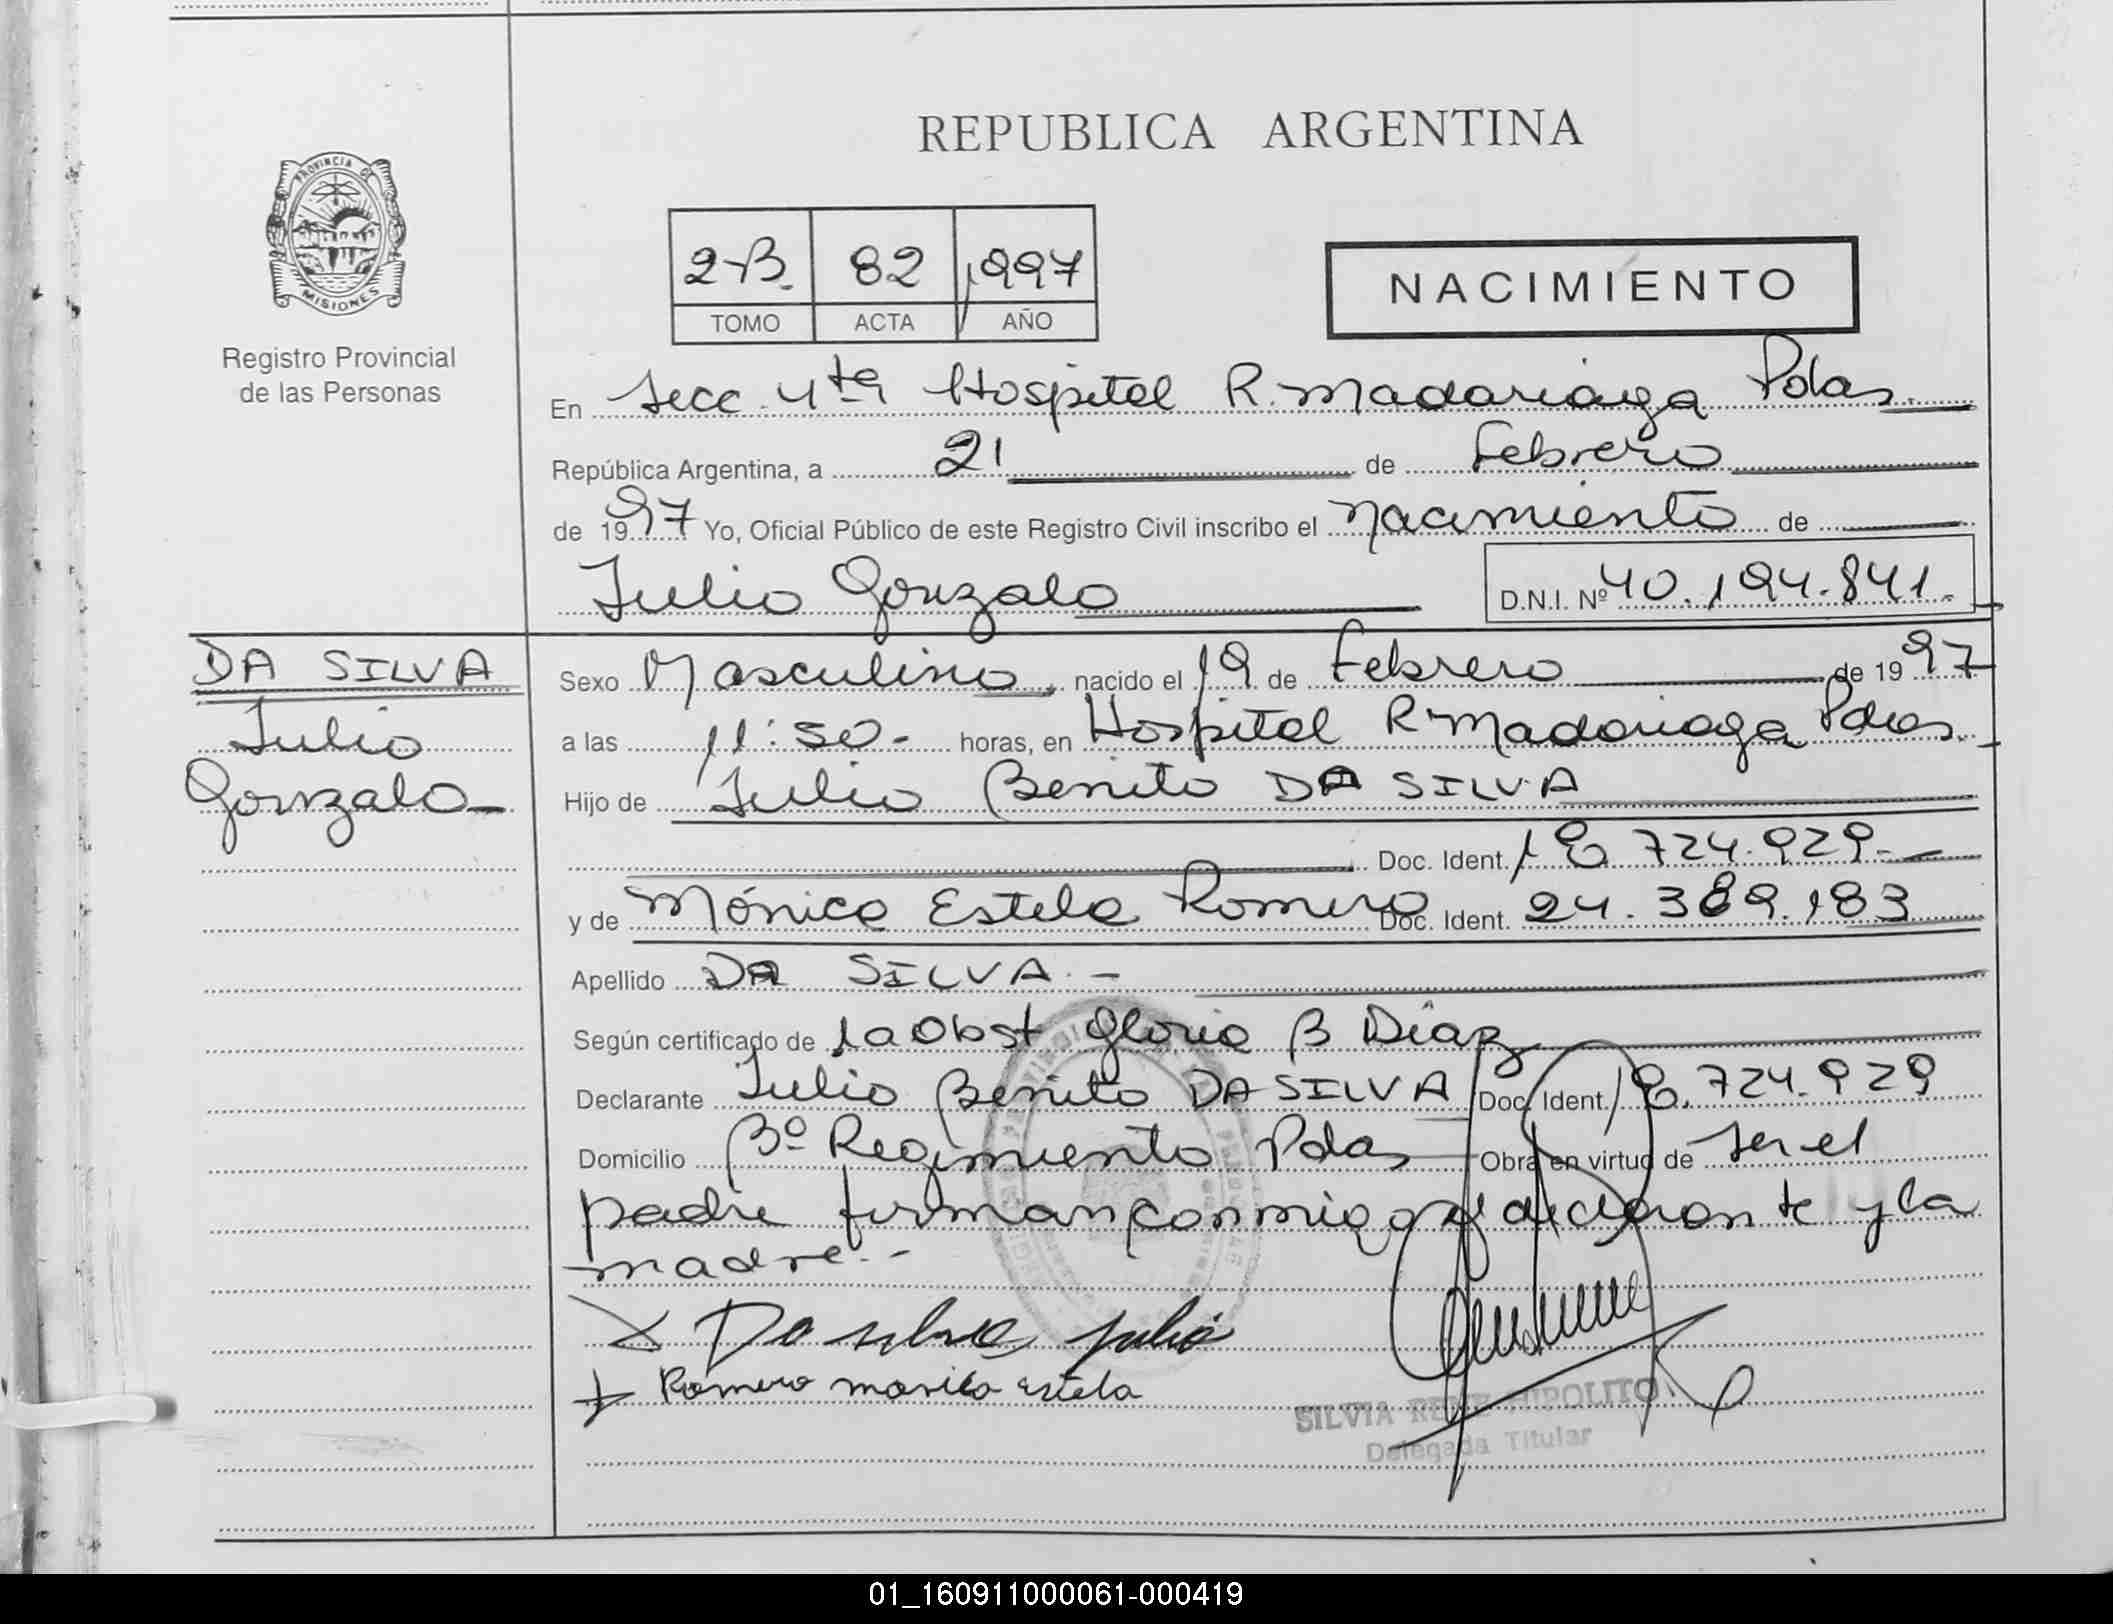 REPUBLICA ARGENTINA
PROVINCIA DE
MISIONES
Registro Provincial
de las Personas
2-B. 82 1997
TOMO ACTA AÑO
NACIMIENTO
En Secc. 4ta Hospital R. Madariaga Pdas.
República Argentina, a 21 de Febrero
de 1997 Yo, Oficial Público de este Registro Civil inscribo el nacimiento de
Julio Gonzalo D.N.I. Nº 40.194.841.-
DA SILVA
Julio
Gonzalo-
Sexo Masculino, nacido el 19 de Febrero de 1997
a las 11:50.- horas, en Hospital R Madariaga Pdas.
Hijo de Julio Benito DA SILVA
Doc. Ident. 18.724.929.-
y de Mónica Estela Romero Doc. Ident. 24.389.183
Apellido DA SILVA.-
Según certificado de la Obst Gloria B Díaz
Declarante Julio Benito DA SILVA Doc. Ident. 18.724.929
Domicilio Bº Regimiento Pdas Obra en virtud de ser el
padre firman conmigo el declarante y la
madre.-
Da silva julio
Romero monica estela
SILVIA RENE HIPOLITO
Delegada Titular
01_160911000061-000419